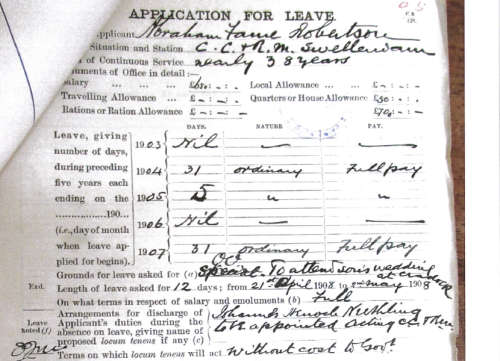 APPLICATION FOR LEAVE.
Applicant Abraham Faure Robertson
Situation and Station C. C. & R. M. Swellendam
of Continuous Service nearly 38 years
uments of Office in detail:—
Salary ... ... ... £ : - : - Local Allowance ... ... £ - : - : -
Travelling Allowance ... £ - : - : - Quarters or House Allowance £50 : - : -
Rations or Ration Allowance £ - : - : - £ : - : -
DAYS. NATURE PAY.
Leave, giving
1903 Nil — —
number of days,
during preceding
1904 31 ordinary Full pay
five years each
ending on the
1905 5 " "
.................190...
1906 Nil — —
(i.e., day of month
when leave ap-
1907 31 ordinary Full pay
plied for begins).
Grounds for leave asked for (a) Special To attend son's wedding
at
End. Length of leave asked for 12 days; from 21st April 1908 to 2nd May 1908
On what terms in respect of salary and emoluments (b) Full
Arrangements for discharge of
Leave Applicant's duties during the Nethling
noted (f) absence on leave, giving name of to be appointed acting
proposed locum tenens if any (c)
Terms on which locum tenens will act without cost to Govt.